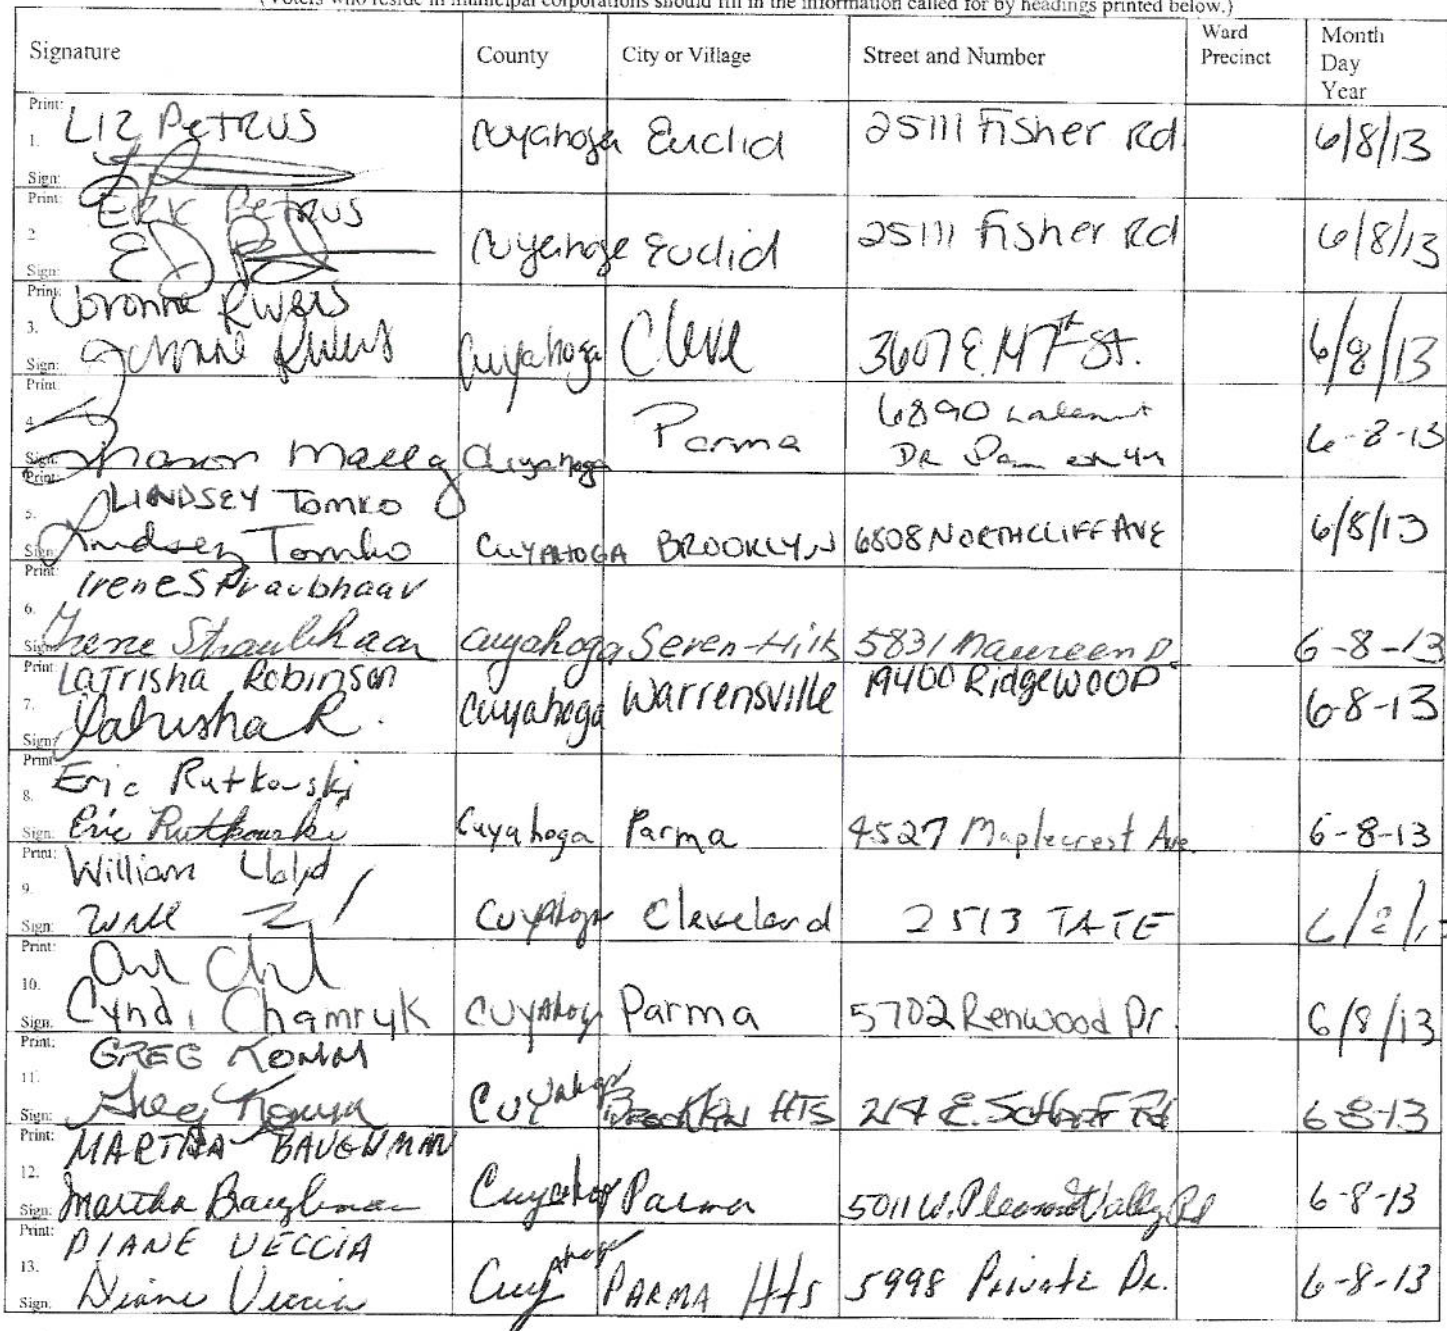 (Voters who reside in municipal corporations should fill in the information called for by headings printed below.)
Signature County City or Village Street and Number Ward Precinct Month Day Year
Print: LIZ PETRUS
1. Cuyahoga Euclid 25111 Fisher Rd 6/8/13
Sign:
Print: ERIK PETRUS
2. Cuyahoga Euclid 25111 Fisher Rd 6/8/13
Sign:
Print: Jovonne Rivers
3. Cuyahoga Cleve 3607 E 147th St. 6/8/13
Sign: Jovonne Rivers
Print:
4. Parma 6890 6-8-13
Sign: Sharon Cuyahoga DR
Print: LINDSEY TOMKO
5. CUYAHOGA BROOKLYN 6808 NORTHCLIFF AVE 6/8/13
Sign: Lindsey Tomko
Print: Irene Straubhaar
6.
Sign: Irene Straubhaar Cuyahoga Seven-Hills 5831 Maureen D. 6-8-13
Print: LaTrisha Robinson
7. Cuyahoga Warrensville 19400 RidgeWOOD 6-8-13
Sign: Latrisha R.
Print: Eric Rutkowski
8.
Sign: Eric Rutkowski Cuyahoga Parma 4527 Maplecrest Ave. 6-8-13
Print: William Lloyd
9.
Sign: Will Cuyahoga Cleveland 2513 TATE
Print:
10.
Sign: Cyndi Chamryk Cuyahoga Parma 5702 Renwood Dr. 6/8/13
Print: GREG KONYA
11.
Sign: Greg Konya Cuyahoga Brooklyn HTS 214 E. Schaaf Rd 6-8-13
Print: MARTHA BAUGHMAN
12.
Sign: Martha Baughman Cuyahoga Parma 5011 W. Pleasant Valley Rd 6-8-13
Print: DIANE VECCIA
13.
Sign: Diane Veccia Cuyahoga PARMA Hts 5998 Private Dr. 6-8-13